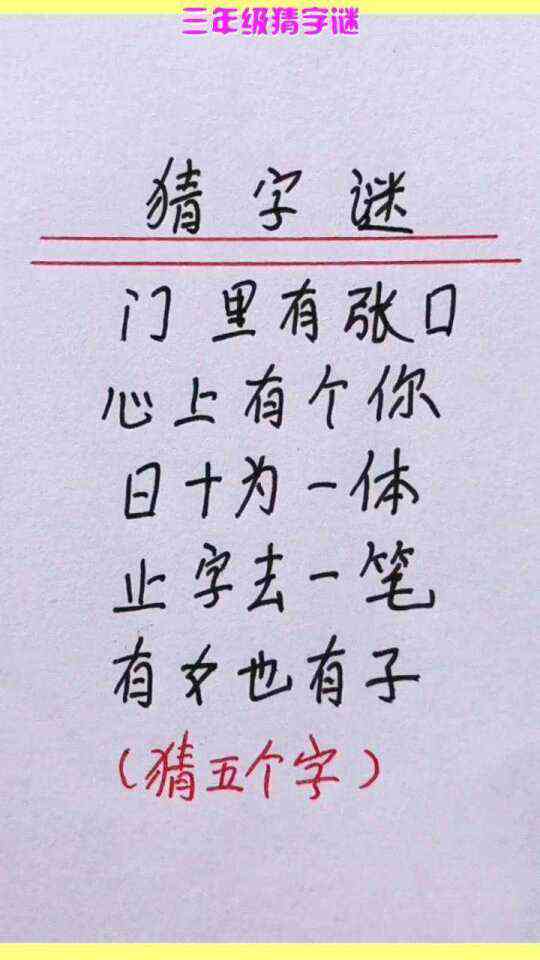 三年级猜字谜
猜字谜
门里有张口
心上有个你
日十为一体
止字去一笔
有女也有子
(猜五个字)